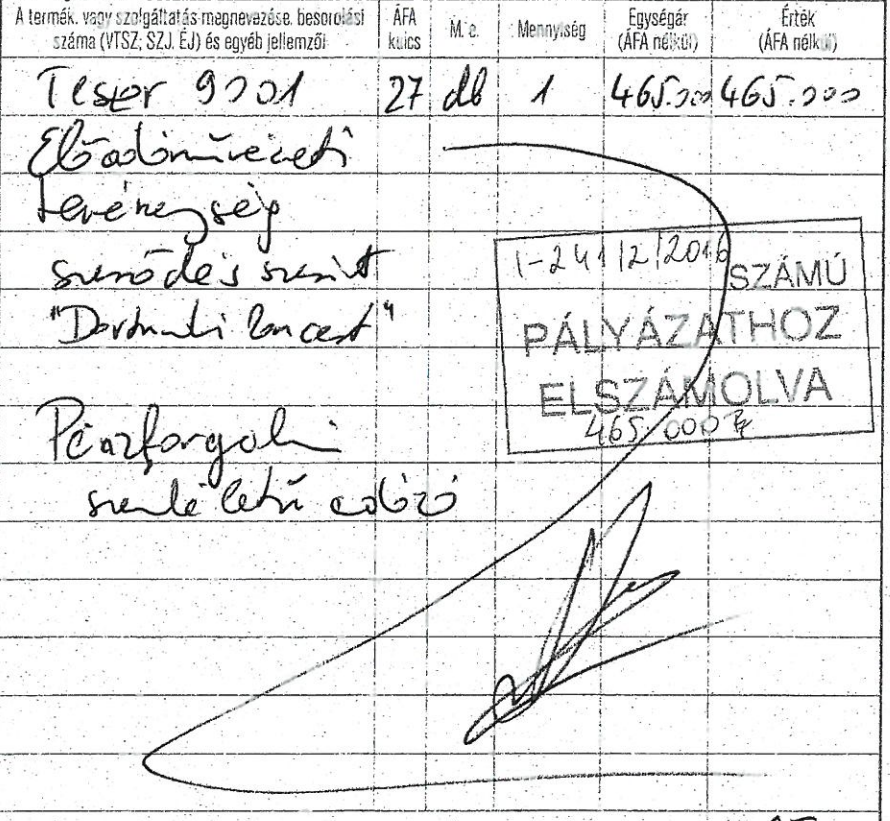 A termék, vagy szolgáltatás megnevezése, besorolási száma (VTSZ; SZJ, ÉJ) és egyéb jellemzői
ÁFA kulcs
M. e.
Mennyiség
Egységár (ÁFA nélkül)
Érték (ÁFA nélkül)
9001 27 db 1 465.000 465.000
Előadóművészeti
tevékenység
szerződés szerint
"Dortmundi koncert"
Pénzforgalmi
szemléletű adózó
1-241/2/2016 SZÁMÚ
PÁLYÁZATHOZ
ELSZÁMOLVA
465.000 Ft